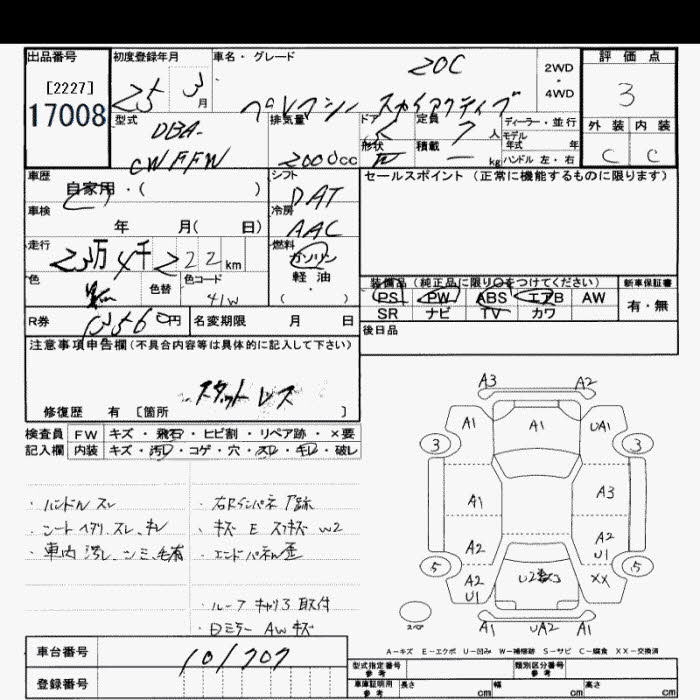 出品番号 初度登録年月 車名・グレード 20C 評価点
[2227] 25 3月 2WD・4WD 3
17008 プレマシー スカイアクティブ
型式 DBA- CWFFW 排気量 2000cc ドア 形状 定員 7人 積載 kg ディーラー・並行 モデル年式 年 ハンドル 左・右 外装 内装
C C
車歴 自家用・( ) シフト DAT セールスポイント (正常に機能するものに限ります)
車検 年 月( 日) 冷房 AAC
走行 23万4千222km 燃料 ガソリン 軽油 ( )
色 色替 色コード 41W
装備品 (純正品に限り○をつけてください) 新車保証書
PS PW ABS エアB AW 有・無
SR ナビ TV カワ
R券 円 名変期限 月 日 後日品
注意事項申告欄(不具合内容等は具体的に記入して下さい)
スタットレス
修復歴 有 [箇所 ]
検査員 FW キズ・飛石・ヒビ割・リペア跡・×要
記入欄 内装 キズ・汚レ・コゲ・穴・スレ・キレ・破レ
・ハンドルスレ
・シートヘタリ、スレ、キレ
・車内汚レ、シミ、毛有
・右Rインパネ 跡
・キズ E スリキズ W2
・エンドパネル歪
・ルーフキャリア取付
・Dミラー AWキズ
A3 A2
A1 A1 UA1
3 3
A1 A3
A2 A2 U1
5 5
A2 U1 XX
スペア A1 UA2 A1
A-キズ E-エクボ U-凹み W-補修跡 S-サビ C-腐食 XX-交換済
車台番号 101707
登録番号
型式指定番号 参考 類別区分番号 参考
車庫証明用 参考 長さ cm 幅 cm 高さ cm